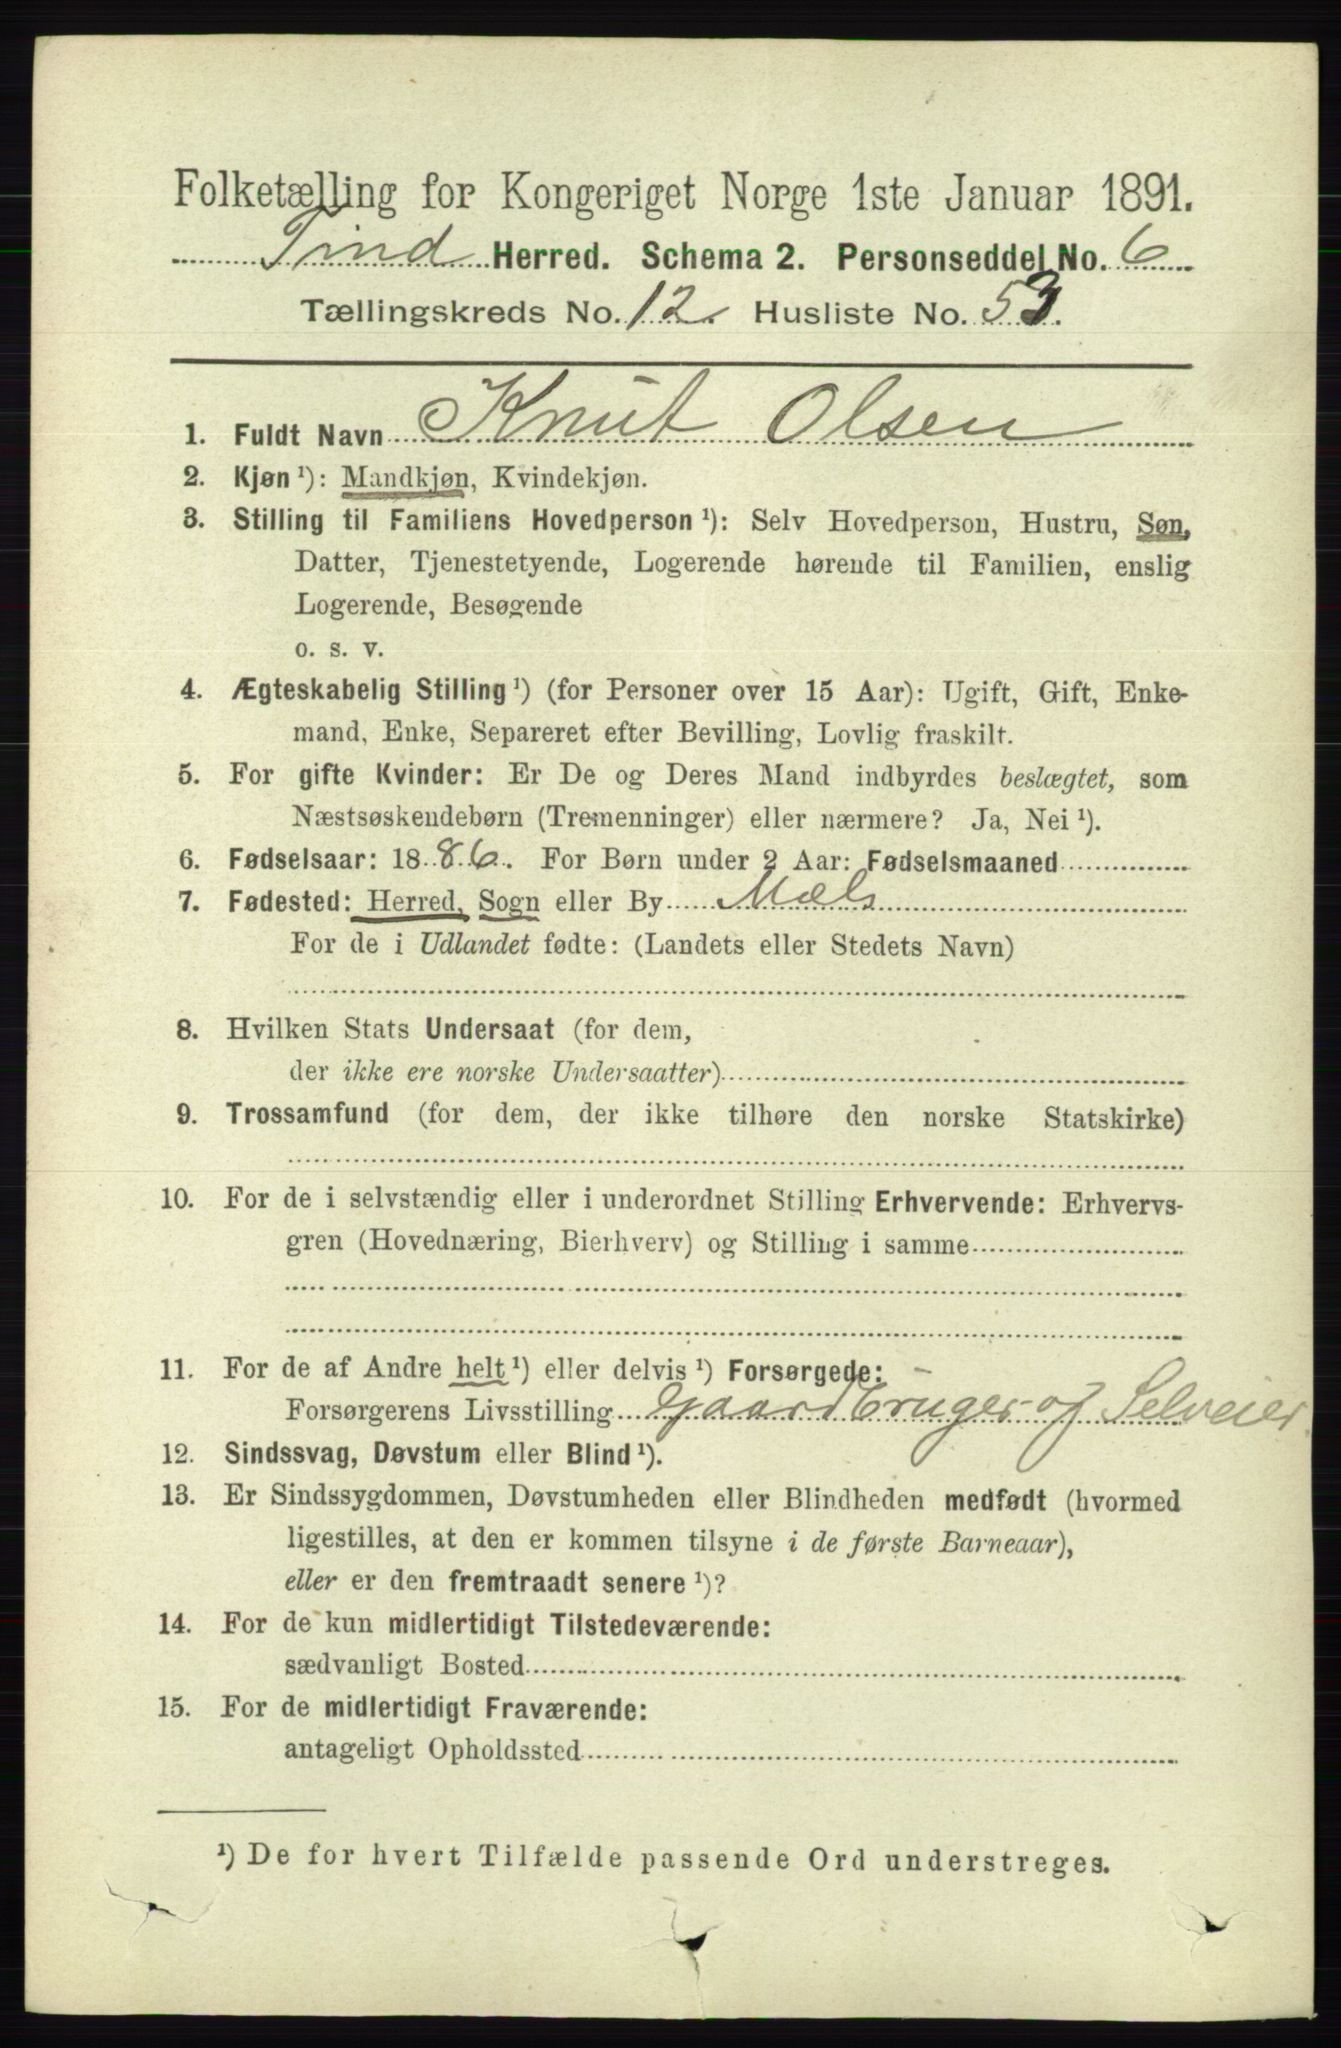 Folketælling for Kongeriget Norge 1ste Januar 1891.
Tind Herred. Schema 2. Personseddel No. 6
Tællingskreds No. 12. Husliste No. 53.
1. Fuldt Navn Knut Olsen
2. Kjøn ¹): Mandkjøn, Kvindekjøn.
3. Stilling til Familiens Hovedperson ¹): Selv Hovedperson, Hustru, Søn,
Datter, Tjenestetyende, Logerende hørende til Familien, enslig
Logerende, Besøgende
o. s. v.
4. Ægteskabelig Stilling ¹) (for Personer over 15 Aar): Ugift, Gift, Enke-
mand, Enke, Separeret efter Bevilling, Lovlig fraskilt.
5. For gifte Kvinder: Er De og Deres Mand indbyrdes beslægtet, som
Næstsøskendebørn (Tremenninger) eller nærmere? Ja, Nei ¹).
6. Fødselsaar: 1886. For Børn under 2 Aar: Fødselsmaaned
7. Fødested: Herred, Sogn eller By Mæls
For de i Udlandet fødte: (Landets eller Stedets Navn)
8. Hvilken Stats Undersaat (for dem,
der ikke ere norske Undersaatter)
9. Trossamfund (for dem, der ikke tilhøre den norske Statskirke)
10. For de i selvstændig eller i underordnet Stilling Erhvervende: Erhvervs-
gren (Hovednæring, Bierhverv) og Stilling i samme
11. For de af Andre helt ¹) eller delvis ¹) Forsørgede:
Forsørgerens Livsstilling Gaardbruger og Selveier
12. Sindssvag, Døvstum eller Blind ¹).
13. Er Sindssygdommen, Døvstumheden eller Blindheden medfødt (hvormed
ligestilles, at den er kommen tilsyne i de første Barneaar),
eller er den fremtraadt senere ¹)?
14. For de kun midlertidigt Tilstedeværende:
sædvanligt Bosted
15. For de midlertidigt Fraværende:
antageligt Opholdssted
¹) De for hvert Tilfælde passende Ord understreges.